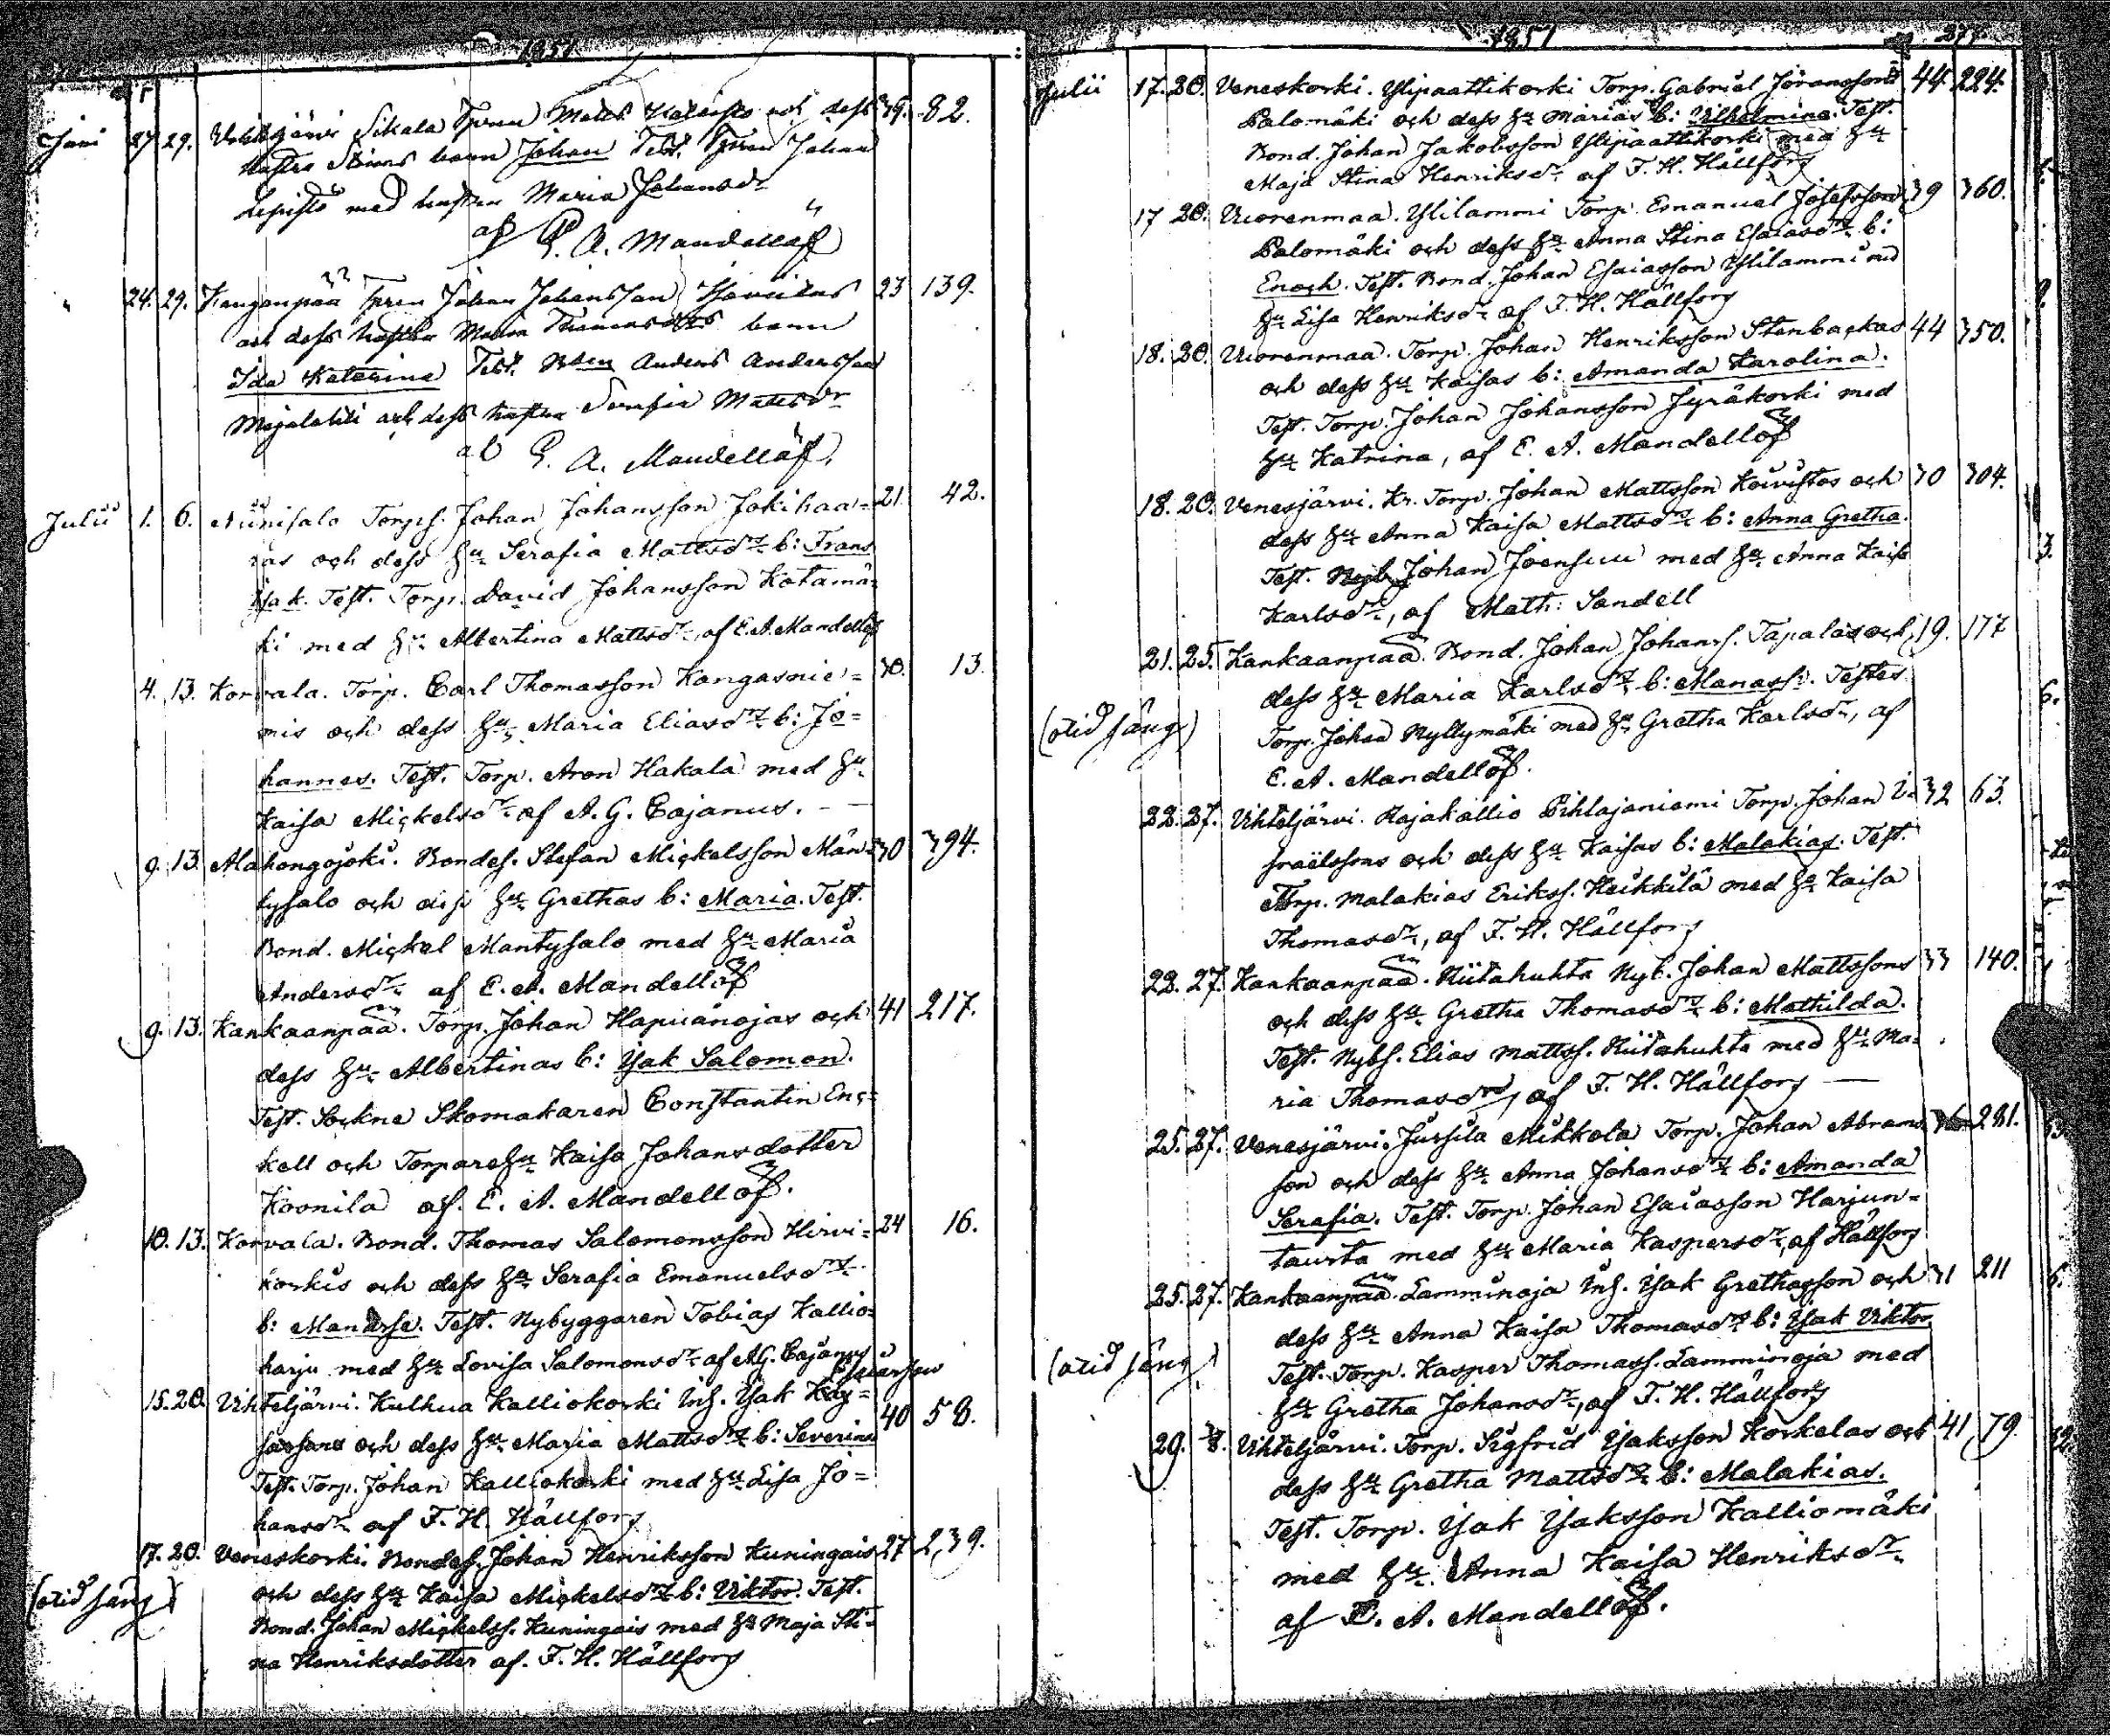 1851.
Juni 27 29. Vihteljärvi Sikala Tpren Matts och dess 39. 82.
hustru Stinas barn Johan Test. Tpren Johan
Lepistö med hustru Maria Johansdr
af E. A. Mandellöf
24. 29. Kanganpää Tpren Johan Johansson 23 139.
och dess hustru Maria Thomasdrs barn
Ida Katarina Test. Anders Andersson
Majalahti och dess hustru Serafia Mattsdr
af E. A. Mandellöf.
Julii 1. 6. Niinisalo Torps. Johan Johansson Jokihaa= 21. 42.
ras och dess hu Serafia Mattsdrs b: Frans
Isak. Test. Torp. David Johansson Kotamä=
ki med hu Albertina Mattsdr, af E. A. Mandellöf
4. 13. Korvala. Torp. Carl Thomasson Kangasnie= 30. 13.
mis och dess hu Maria Eliasdrs b: Jo=
hannes. Test. Torp. Aron Hakala med hu
Kaisa Mickelsdr af A. G. Cajanus. —
9. 13. Alahongojoki. Bondes. Stefan Mickelsson Män= 30 394.
tysalo och dess hu Grethas b: Maria. Test.
Bond. Mickel Mantysalo med hu Maria
Andersdr af E. A. Mandellöf
9. 13. Kankaanpää. Torp. Johan Hapuanojas och 41 217.
dess hu Albertinas b: Isak Salomon.
Test. Sockne Skomakaren Constantin Enc=
kell och Torparehu Kaisa Johansdotter
Koonila af. E. A. Mandellöf.
10. 13. Korvala. Bond. Thomas Salomonsson Hirvi= 24 16.
korkis och dess hu Serafia Emanuelsdrs
b: Manasse. Test. Nybyggaren Tobias Kallio=
harju med hu Lovisa Salomonsdr af A G. Cajanus
15. 20. Vihteljärvi. Kulhua Kalliokorki Inh. Isak 40 58.
och dess hu Maria Mattsdrs b: Severina
Test. Torp. Johan Kalliokorki med hu Lisa Jo=
hansdr af F. H. Hällfors
17. 20. Veneskorki. Bondes. Johan Henriksson Kuningais 27 239.
(otid säng) och dess hu Kaisa Mickelsdrs b: Viktor. Test.
Bond. Johan Mickelss. Kuningais med hu Maja Sti=
na Henriksdotter af. F. H. Hällfors
1851 277.
Julii 17. 20. Veneskorki. Ylipaattikorki Torp. Gabriel Göranssons 44. 224.
Palomäki och dess hu Marias b: Vilhelmina. Test.
Bond. Johan Jakobsson Ylipaattikorki med hu
Maja Stina Henriksdr af F. H. Hällfors
17 20. Vuorenmaa. Ylilammi Torp. Emanuel Josefsson 39 360.
Palomäki och dess hu Anna Stina Esaiasdrs b:
Enoch. Test. Bond. Johan Esaiasson Ylilammi md
hu Lisa Henriksdr af F. H. Hällfors
18. 20. Vuorenmaa. Torp. Johan Henriksson Stenbackas 44 350.
och dess hu Kaisas b: Amanda Karolina.
Test. Torp. Johan Johansson Jyräkorki med
hu Katrina, af E. A. Mandellöf
18. 20. Venesjärvi. Kr. Torp. Johan Mattsson Koivistos och 30 304.
dess hu Anna Kaisa Mattsdrs b: Anna Gretha.
Test. Nyb. Johan Joensuu med hu Anna Kaisa
Karlsdr, af Math: Sandell
21. 25. Kankaanpää. Bond. Johan Johanss. Tapalas och 19. 177
dess hu Maria Karlsdrs b: Manass. Testes
(otid säng) Torp. Johan Myllymäki med hu Gretha Karlsdr, af
E. A. Mandellöf.
22. 27. Vihteljärvi. Rajakallio Pihlajaniemi Torp. Johan I= 32 63.
sraëlssons och dess hu Kaisas b: Malakias. Test.
Torp. Malakias Erikss. Heikkilä med hu Kaisa
Thomasdr, af F. H. Hällfors
22. 27. Kankaanpää. Riitahuhta Nyb. Johan Mattssons 33 140.
och dess hu Gretha Thomasdrs b: Mathilda.
Test. Nybs. Elias Mattss. Riitahuhta med hu Ma=
ria Thomasdr, af F. H. Hällfors —
25. 27. Venesjärvi. Jussila Mikkola Torp. Johan Abrams 281.
son och dess hu Anna Johansdrs b: Amanda
Serafia. Test. Torp. Johan Esaiasson Harjun=
tausta med hu Maria Kaspersdr, af Hällfors
25. 27. Kankaanpää. Lamminoja Inh. Isak Grethasson och 31 211
dess hu Anna Kaisa Thomasdrs b: Isak Viktor
(otid säng) Test. Torp. Kasper Thomass. Lamminoja med
hu Gretha Johansdr, af F. H. Hällfors
29. 3/8. Vihteljärvi. Torp. Sigfrid Isaksson Korkelas och 41 79.
dess hu Gretha Mattsdrs b: Malakias.
Test. Torp. Isak Isaksson Kalliomäki
med hu Anna Kaisa Henriksdr
af E. A. Mandellöf.